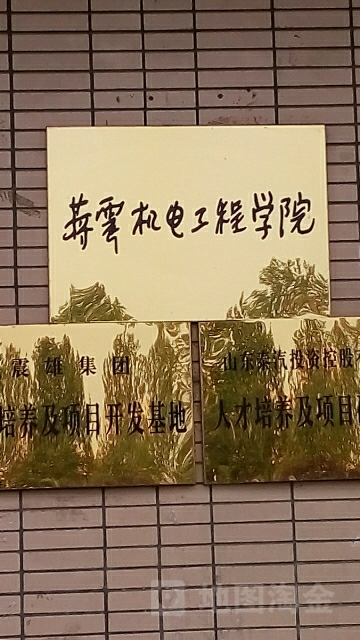 蒋震机电工程学院
震雄集团
培养及项目开发基地
山东泰汽投资控股
人才培养及项目
地图淘金